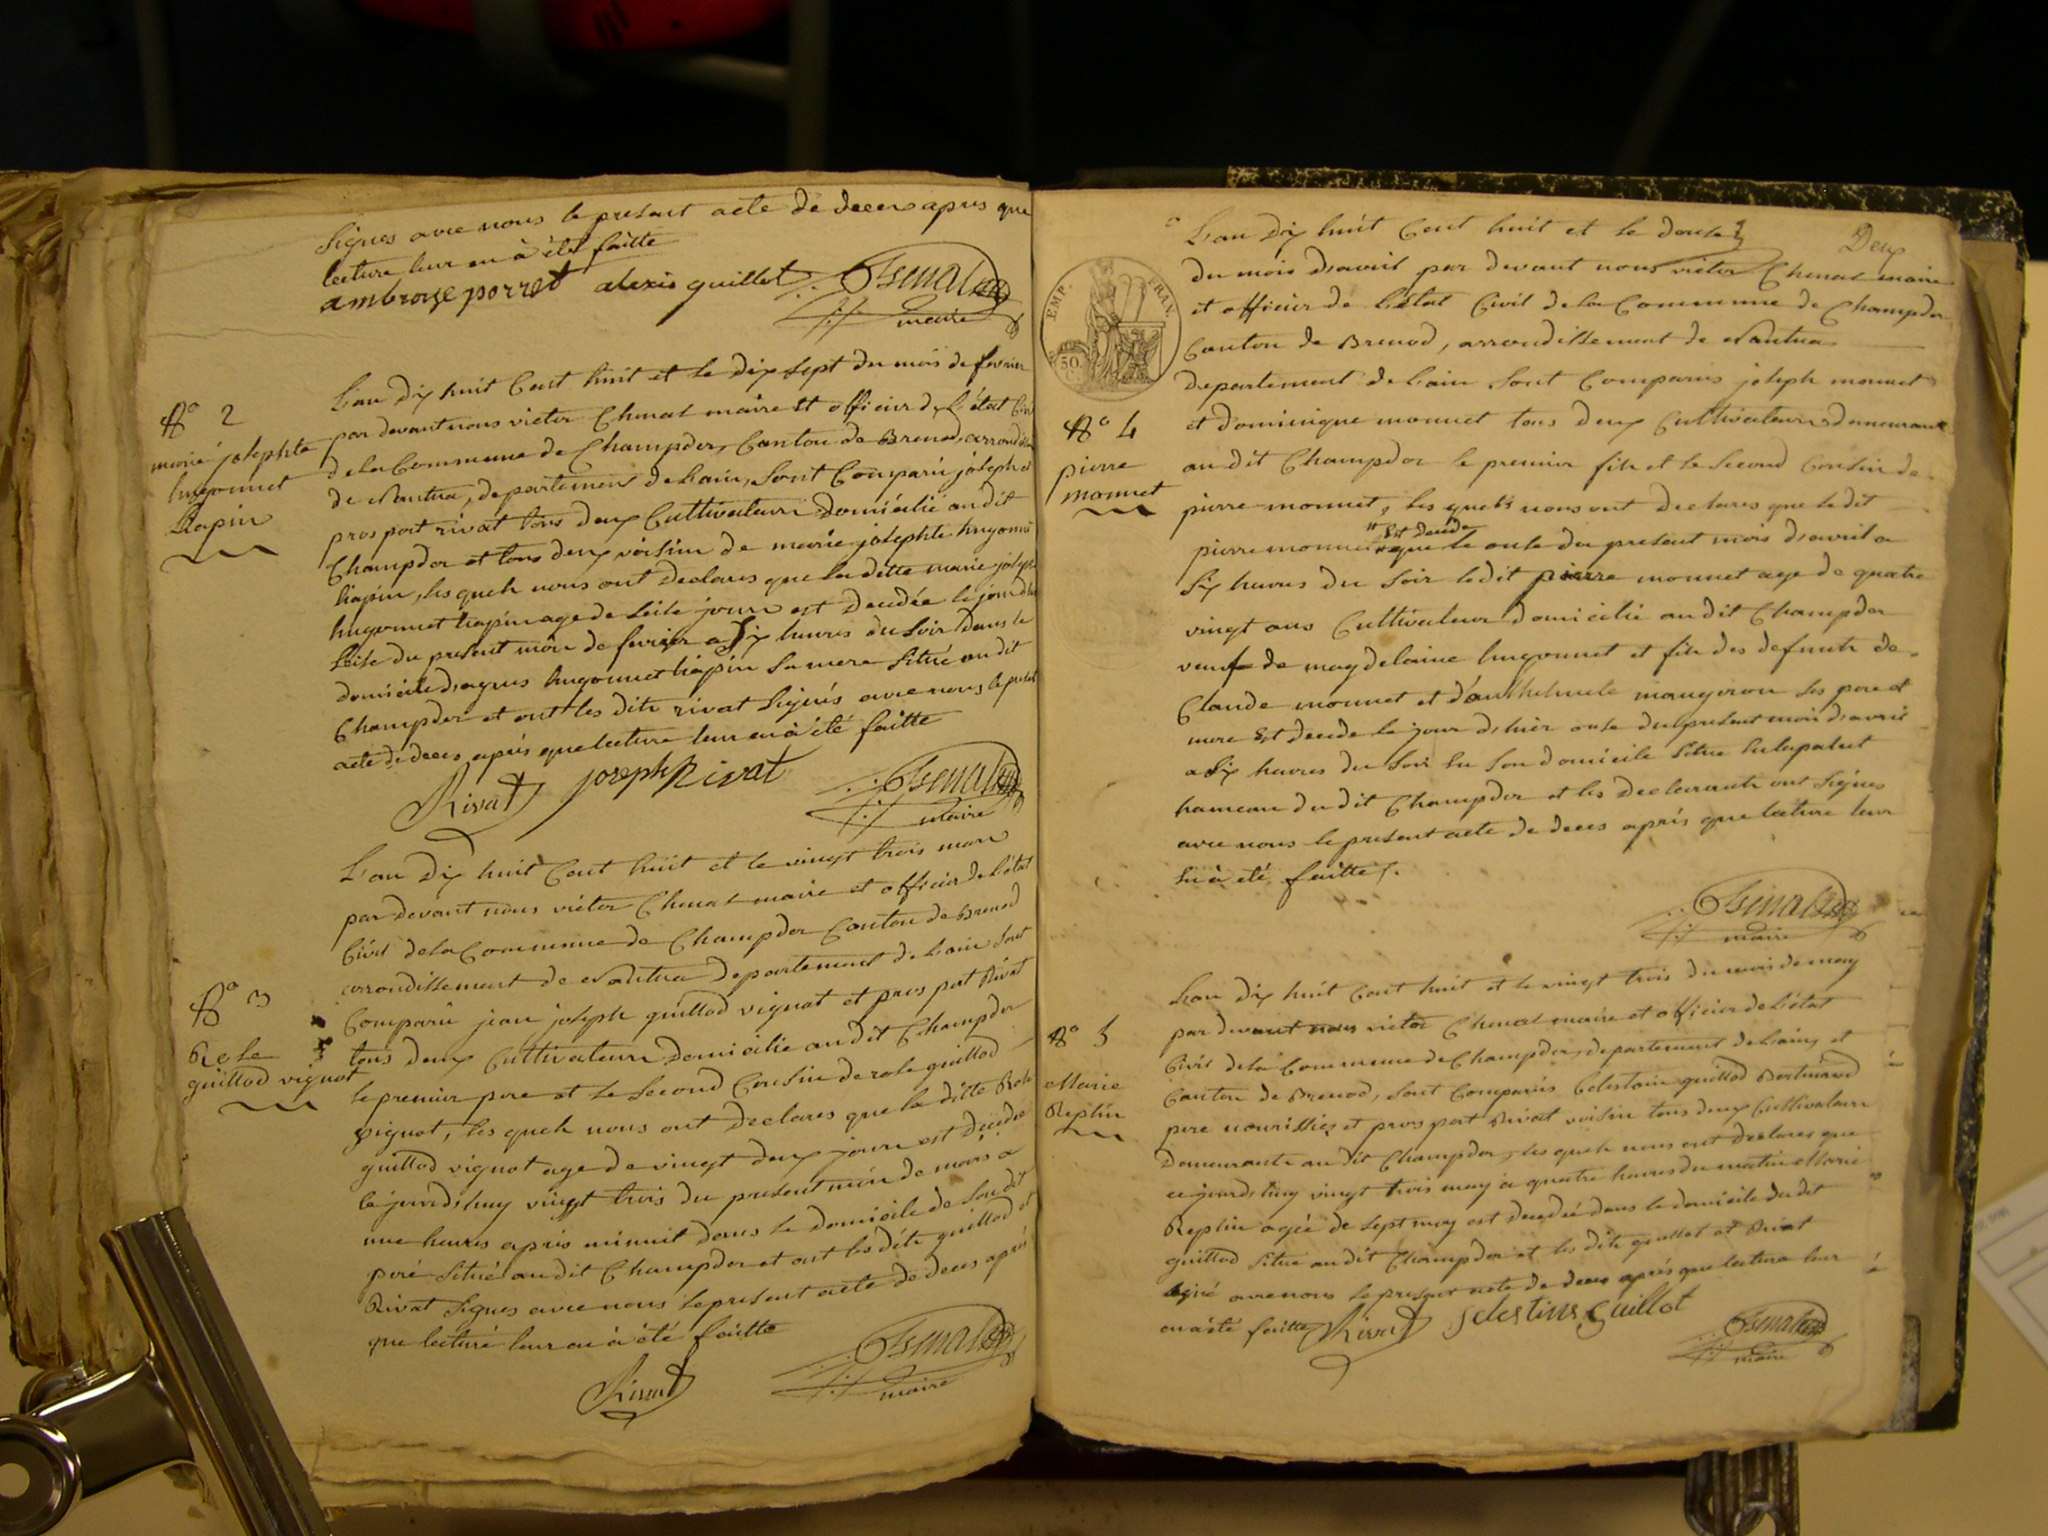 signes avec nous le present acte de deces apres que
lecture leur en à été faitte
ambroise porret alexis guillot Chenal
maire
N° 2
marie josephte
hugonnet
Liapin
L'an dix huit Cent huit et le dix sept du mois de fevrier
par devant nous victor Chenal maire et officier de L'état Civil
de la Commune de Champdor, Canton de Brenod, arrondis
de Nantua, departement de Lain, sont Comparu joseph et
prospert rivat tous deux Cultivateurs domiciliè au dit
Champdor et tous deux voisins de marie josephte hugonnet
liapin, les quels nous ont declares que la ditte marie joseph
hugonnet liapin age de seize jours est decedée le jour d'hier
seize du present mois de fevrier a dix heures du soir dans le
domicile d'agnes hugonnet liapin sa mere situé au dit
Champdor et ont les dits rivat signés avec nous le present
acte de deces après que lecture leur en à été faitte
Rivat joseph Rivat Chenal
maire
N° 3
Rose
guillod vignot
L'an dix huit Cent huit et le vingt trois mars
par devant nous victor Chenal maire et officier de L'état
Civil de la Commune de Champdor Canton de Brenod
arrondissement de Nantua departement de Lain sont
Comparu jean joseph guillod vignot et prospert Rivat
tous deux Cultivateurs domicilie au dit Champdor
le premier pere et le second Cousin de rose guillod
vignot, les quels nous ont declares que la ditte Rose
guillod vignot age de vingt deux jours est decedée
ce jourd'huy vingt trois du present mois de mars à
une heures après minuit dans le domicile de son dit
pere situé au dit Champdor et ont les dits guillod et
Rivat signes avec nous le present acte de deces après
que lecture leur en à été faitte
Rivat Chenal
maire
Deux
EMP. FRAN.
50
L'an dix huit Cent huit et le douse
du mois d'avril par devant nous victor Chenal maire
et officier de L'état Civil de la Commune de Champdor
Canton de Brenod, arrondissement de Nantua
departement de Lain sont Comparus joseph monnet
et dominique monnet tous deux Cultivateurs demeurant
au dit Champdor le premier fils et le second Cousin de
pierre monnet, les quels nous ont declares que le dit
Est decede
pierre monnet que le onse du present mois d'avril a
six heures du soir le dit pierre monnet age de quatre
vingt ans Cultivateur domicilié au dit Champdor
veuf de magdelaine hugonnet et fils des defunts de
Claude monnet et d'anthelmete maugiron ses pere et
mere Est decede le jour d'hier onse du present mois d'avril
a six heures du soir en son domicile situe
hameau du dit Champdor et les declarants ont signes
avec nous le present acte de deces après que lecture leur
en à été faitte.
N° 4
pierre
monnet
Chenal
maire
N° 5
Marie
Replin
L'an dix huit Cent huit et le vingt trois du mois de may
par devant nous victor Chenal maire et officier de L'état
Civil de la Commune de Champdor, departement de Lain, et
Canton de Brenod, sont Comparus Celestain guillod Bertinand
pere nourissies et prospert Rivat voisin tous deux Cultivateurs
demeurants au dit Champdor, les quels nous ont declares que
ce jourd'huy vingt trois may à quatre heures du matin Marie
Replin agée de sept moy est decedée dans le domicile du dit
guillod situe au dit Champdor et les dits guillot et Rivat
signé avec nous le present acte de deces après que lecture leur
en a été faitte Rivat Selestins Guillot Chenal
maire